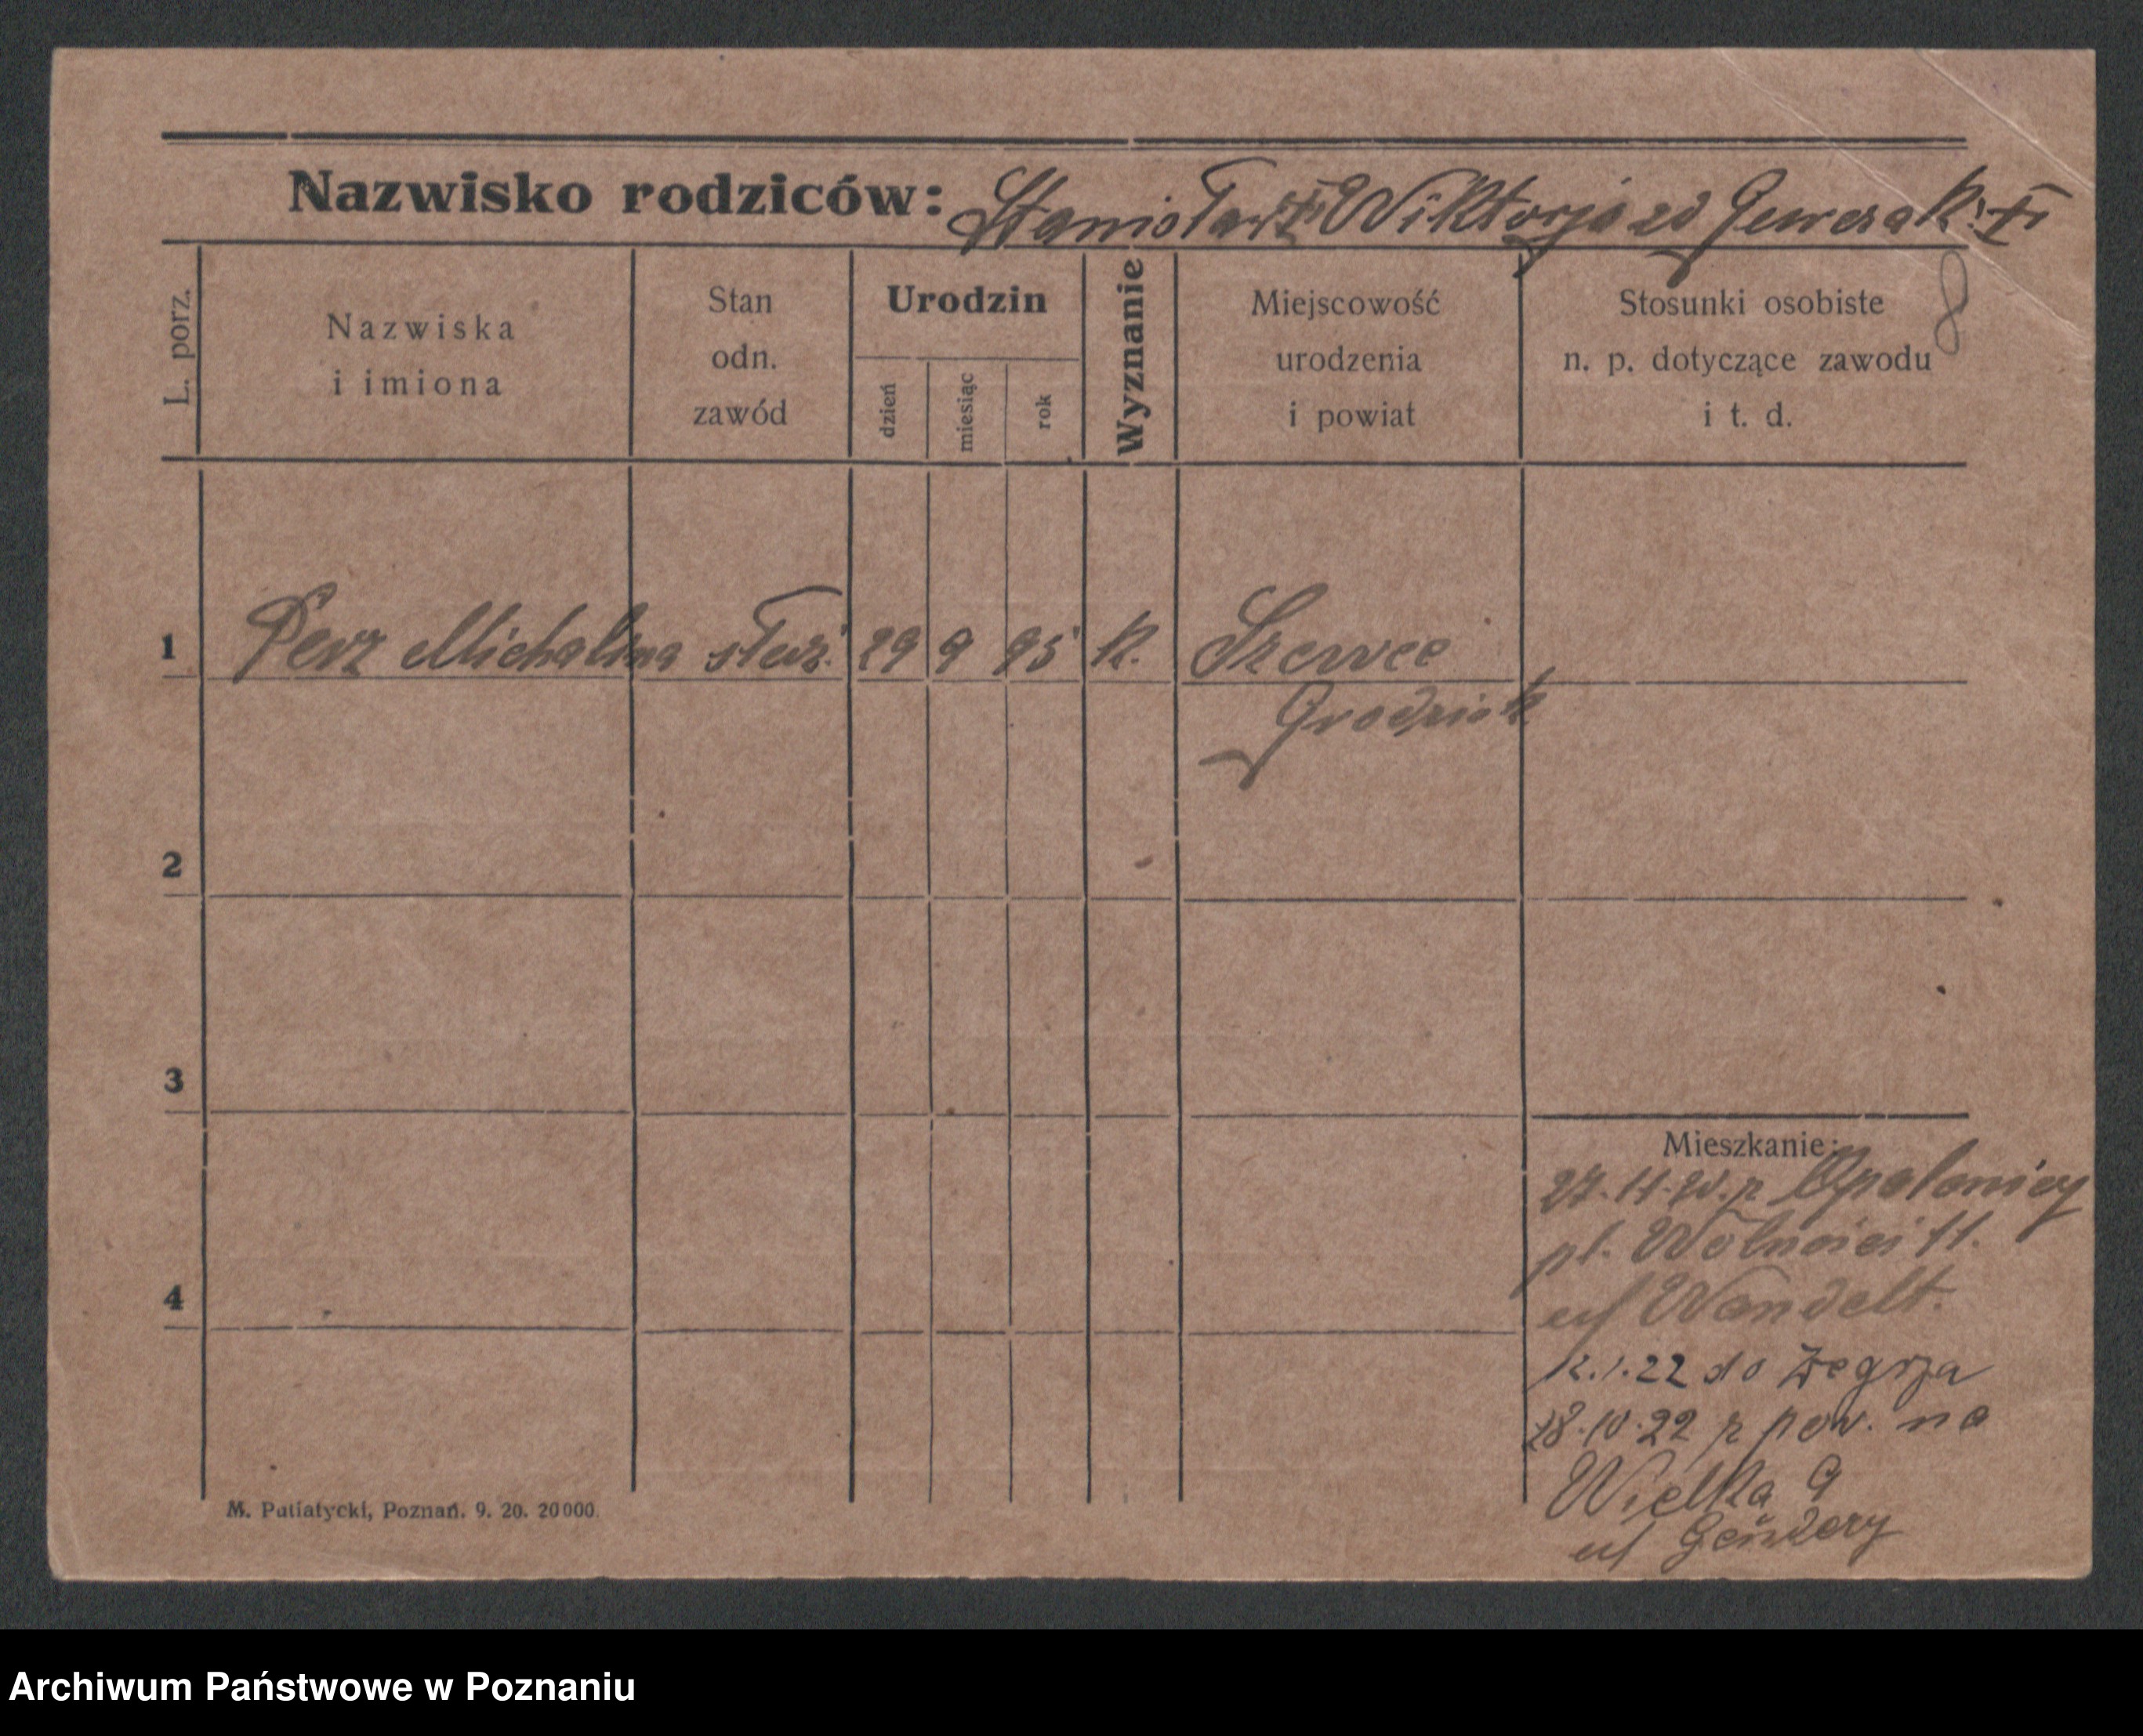 Nazwisko rodziców: Stanisław Wiktorja zd
L. porz.
Nazwiska
i imiona
Stan
odn.
zawód
Urodzin
dzień
miesiąc
rok
Wyznanie
Miejscowość
urodzenia
i powiat
Stosunki osobiste
n. p. dotyczące zawodu
i t. d.
1 Perz Michalina służ. 29 9 95 k. Szewce
Grodzisk
2
3
4
Mieszkanie:
27.11.20. z Opalenicy
pl. Wolności 11.
u/ Wandelt.
12.1.22 do Żegrza
28.10.22 z pow. na
Wielka 9
u/
M. Putiatycki, Poznań. 9. 20. 20000.
Archiwum Państwowe w Poznaniu